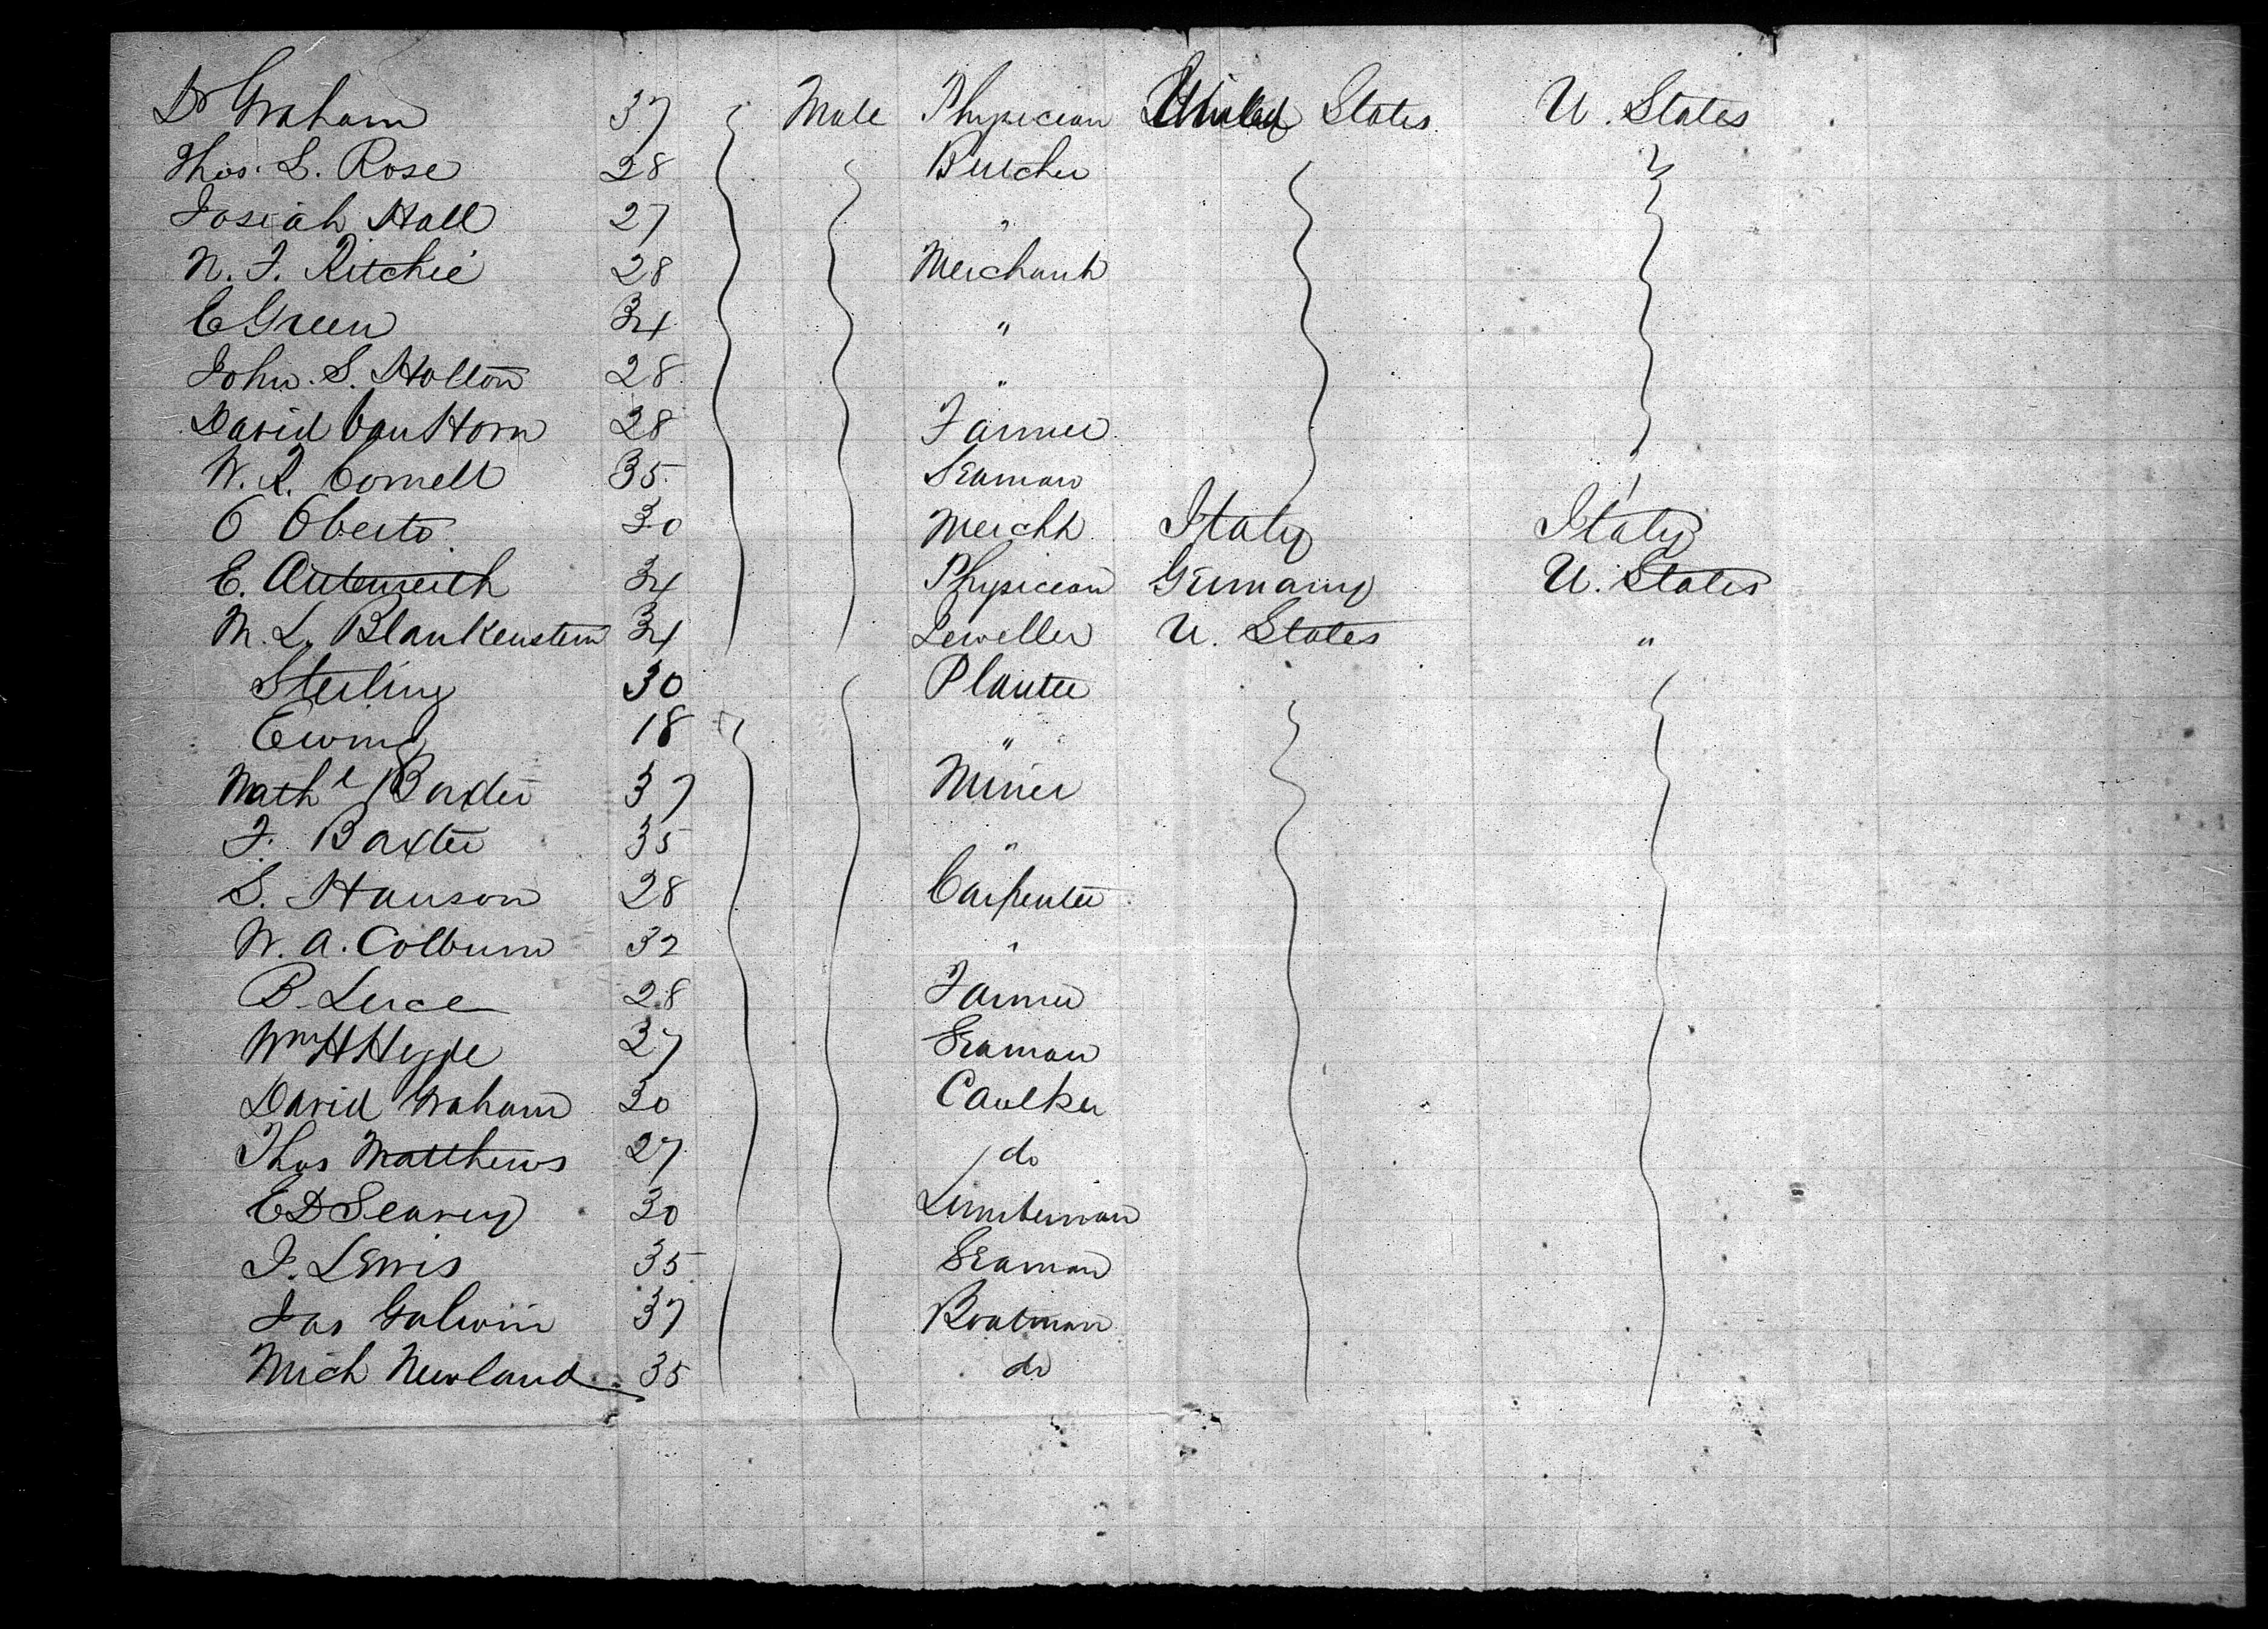 Dr Graham 37 Male Physician United States U. States
Thos. L. Rose 28 Butcher
Josiah Hall 27 "
N. F. Ritchie 28 Merchant
C Green 34 "
John. S. Holton 28 "
David Van Horn 28 Farmer
W. R. Cornell 35 Seaman
O Oberto 30 Mercht Italy Italy
E. Autenrieth 34 Physician Germany U. States
M. L. Blankenstein 34 Jeweller U. States "
Sterling 30 Planter
Ewing 18 "
Nathl Baxter 37 Miner
F. Baxter 35 "
S. Hanson 28 Carpenter
W. A. Colburn 32 "
B. Luce 28 Farmer
Wm H Hyde 27 Seaman
David Graham 30 Caulker
Thos Matthews 27 do
E D Seavey 30 Lumberman
J. Lewis 35 Seaman
Jas Galwin 37 Boatman
Mich Newland 35 do